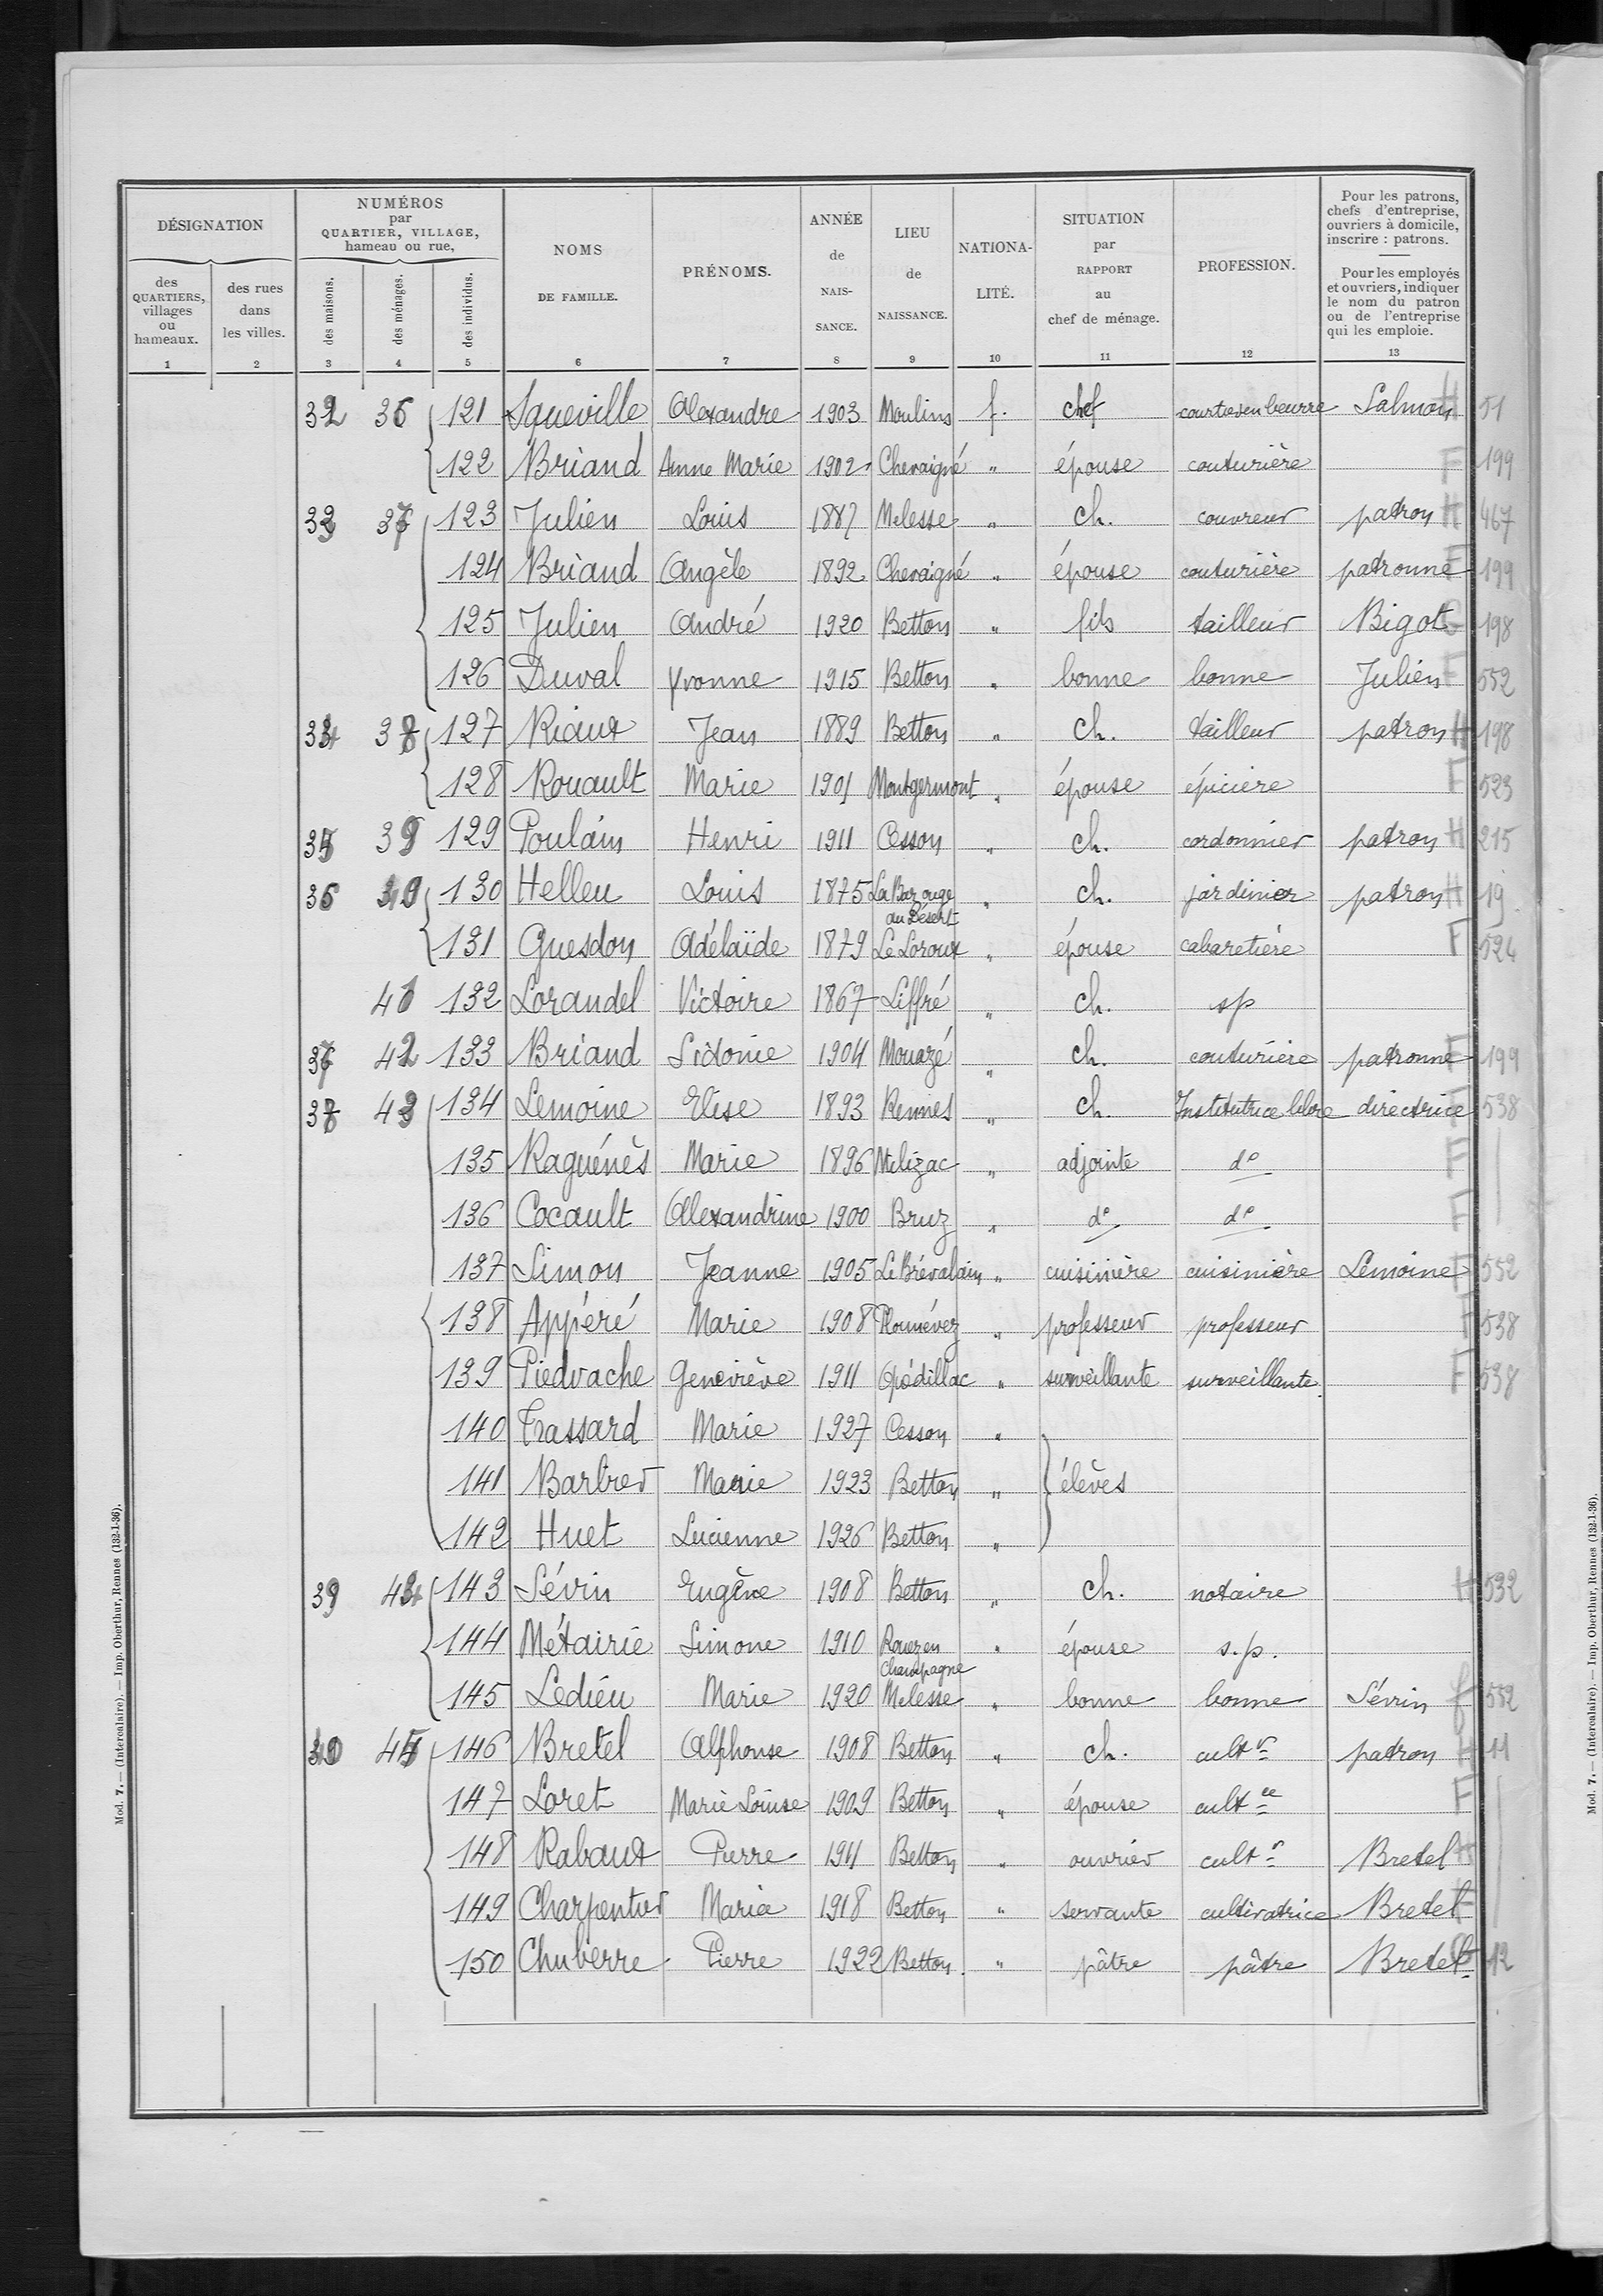 DÉSIGNATION
des QUARTIERS, villages ou hameaux.
1
des rues dans les villes.
2
NUMÉROS par QUARTIER, VILLAGE, hameau ou rue,
des maisons.
3
des ménages.
4
des individus.
5
NOMS DE FAMILLE.
6
PRÉNOMS.
7
ANNÉE de NAIS-SANCE.
8
LIEU de NAISSANCE.
9
NATIONA-LITÉ.
10
SITUATION par RAPPORT au chef de ménage.
11
PROFESSION.
12
Pour les patrons, chefs d'entreprise, ouvriers à domicile, inscrire : patrons.
Pour les employés et ouvriers, indiquer le nom du patron ou de l'entreprise qui les emploie.
13
32 36 121 Squeville Alexandre 1903 Moulins f. chef courtier en beurre Salmon H 51
122 Briand Anne Marie 1902 Chevaigné " épouse couturière F 199
33 37 123 Julien Louis 1887 Melesse " ch. couvreur patron H 467
124 Briand Angèle 1892 Chevaigné " épouse couturière patronne F 199
125 Julien André 1920 Betton " fils tailleur Bigot G 198
126 Duval Yvonne 1915 Betton " bonne bonne Julien F 552
34 38 127 Riaux Jean 1889 Betton " ch. tailleur patron H 198
128 Rouault Marie 1901 Montgermont " épouse épicière F 523
35 39 129 Poulain Henri 1911 Cesson " ch. cordonnier patron H 215
36 40 130 Helleu Louis 1875 La Bazouge du Désert " ch. jardinier patron H 19
131 Guesdon Adélaïde 1879 Le Loroux " épouse cabaretière F 524
41 132 Lorandel Victoire 1867 Liffré " ch. sp
37 42 133 Briand Sidonie 1904 Mouazé " ch. couturière patronne F 199
38 43 134 Lemoine Elise 1893 Rennes " ch. Institutrice libre directrice F 538
135 Raguénès Marie 1896 Milizac " adjointe d° F
136 Cocault Allexandrine 1900 Bruz " d° d° F
137 Simon Jeanne 1905 Le Brévalain " cuisinière cuisinière Lemoine F 552
138 Appéré Marie 1908 Plounévez " professeur professeur F 538
139 Piedvache Geneviève 1911 Quédillac " surveillante surveillante F 538
140 Trassard Marie 1927 Cesson "
141 Barbier Marie 1923 Betton " élèves
142 Huet Lucienne 1926 Betton "
39 44 143 Sévin Eugène 1908 Betton " ch. notaire H 532
144 Métairie Simone 1910 Rouez en Champagne " épouse s.p.
145 Ledieu Marie 1920 Melesse " bonne bonne Sévin f 552
40 45 146 Bretel Alphonse 1908 Betton " ch. cultr patron H 11
147 Loret Marie Louise 1909 Betton " épouse cultce F
148 Rabaux Pierre 1911 Betton " ouvrier cultr Bretel H
149 Charpentier Maria 1918 Betton " servante cultivatrice Bretel F
150 Chuberre Pierre 1922 Betton " pâtre pâtre Bretel G 12
Mod. 7. — (Intercalaire). — Imp. Oberthur, Rennes (132-1-36).
Mod. 7. — (Intercalaire). — Imp. Oberthur, Rennes (132-1-36).